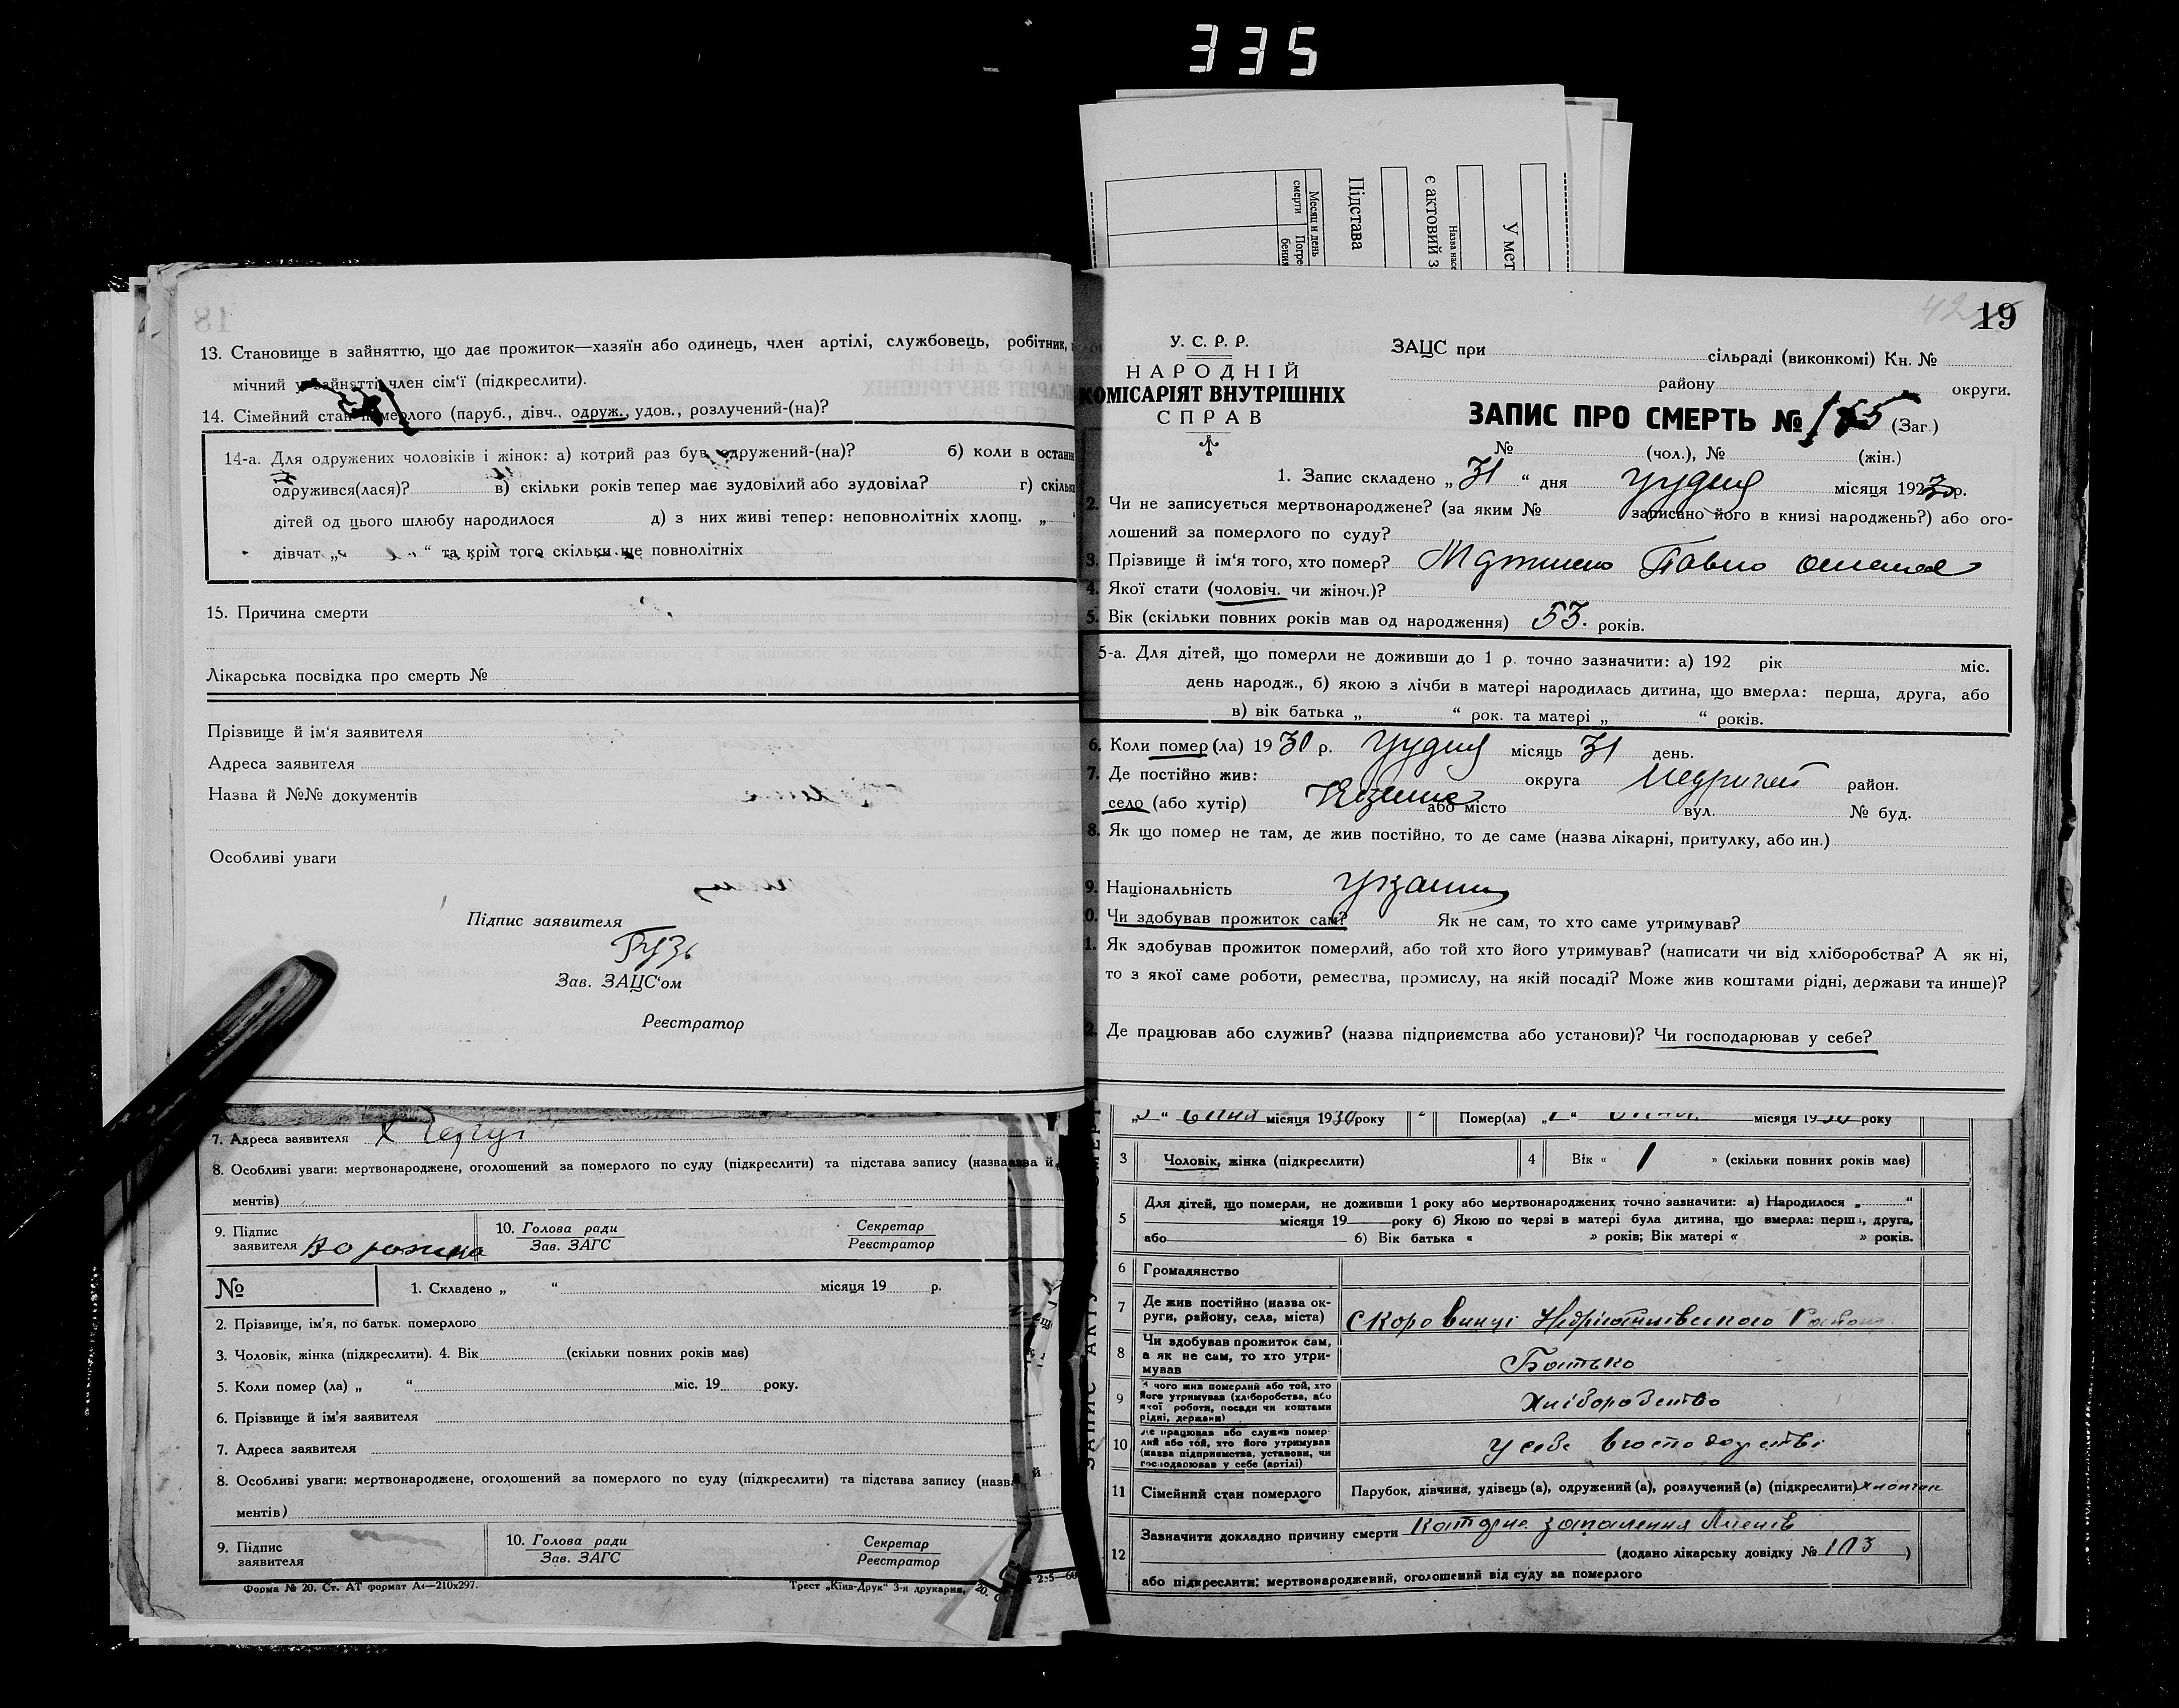 335
Месяц и день смерти
Погребения
Підстава
є актовий з
Назва насе
У мет
18
13. Становище в зайняттю, що дає прожиток—хазяїн або одинець, член артілі, службовець, робітник,
мічний у зайнятті член сім'ї (підкреслити).
14. Сімейний стан померлого (паруб., дівч., одруж., удов., розлучений-(на)?
14-а. Для одружених чоловіків і жінок: а) котрий раз був одружений-(на)? б) коли в останн
одружився(лася)? в) скільки років тепер має зудовілий або зудовіла? г) скільк
дітей од цього шлюбу народилося д) з них живі тепер: неповнолітніх хлопц. „
дівчат „ “ та крім того скільки ще повнолітніх
15. Причина смерти
Лікарська посвідка про смерть №
Прізвище й ім'я заявителя
Адреса заявителя
Назва й №№ документів
Особливі уваги
Підпис заявителя
Гузь
Зав. ЗАЦС'ом
Реєстратор
7. Адреса заявителя х
8. Особливі уваги: мертвонароджене, оголошений за померлого по суду (підкреслити) та підстава запису (назва й
ментів)
9. Підпис заявителя 10. Голова ради Зав. ЗАГС Секретар Реєстратор
№ 1. Складено „ “ місяця 19 р.
2. Прізвище, ім'я, по батьк. померлого
3. Чоловік, жінка (підкреслити). 4. Вік (скільки повних років має)
5. Коли помер (ла) „ “ міс. 19 року.
6. Прізвище й ім'я заявителя
7. Адреса заявителя
8. Особливі уваги: мертвонароджене, оголошений за померлого по суду (підкреслити) та підстава запису (назв й
ментів)
9. Підпис заявителя 10. Голова ради Зав. ЗАГС Секретар Реєстратор
Форма № 20. Ст. АТ формат А4—210х297. Трест „Київ-Друк“ 3-я друкарня,
42 19
У. С. Р. Р.
НАРОДНІЙ
КОМІСАРІЯТ ВНУТРІШНІХ
СПРАВ
ЗАЦС при сільраді (виконкомі) Кн. №
району округи.
ЗАПИС ПРО СМЕРТЬ № 165 (Заг.)
№ (чол.), № (жін.)
1. Запис складено „ 31 “ дня грудня місяця 1930 р.
2. Чи не записується мертвонароджене? (за яким № записано його в книзі народжень?) або ого-
лошений за померлого по суду?
3. Прізвище й ім'я того, хто помер? Павло
4. Якої стати (чоловіч. чи жіноч.)?
5. Вік (скільки повних років мав од народження) 53. років.
5-а. Для дітей, що померли не доживши до 1 р. точно зазначити: а) 192 рік міс.
день народж., б) якою з лічби в матері народилась дитина, що вмерла: перша, друга, або
в) вік батька „ “ рок. та матері „ “ років.
6. Коли помер (ла) 1930 р. грудня місяць 31 день.
7. Де постійно жив: округа район.
село (або хутір) або місто вул. № буд.
8. Як що помер не там, де жив постійно, то де саме (назва лікарні, притулку, або ин.)
9. Національність
10. Чи здобував прожиток сам? Як не сам, то хто саме утримував?
11. Як здобував прожиток померлий, або той хто його утримував? (написати чи від хліборобства? А як ні,
то з якої саме роботи, ремества, промислу, на якій посаді? Може жив коштами рідні, держави та инше)?
12. Де працював або служив? (назва підприємства або установи)? Чи господарював у себе?
місяця 1930 року Помер(ла) місяця 1930 року
3 Чоловік, жінка (підкреслити) 4 Вік « 1 » (скільки повних років має)
5 Для дітей, що померли, не доживши 1 року або мертвонароджених точно зазначити: а) Народилося „ “
місяця 19 року б) Якою по черзі в матері була дитина, що вмерла: перша, друга,
або б) Вік батька « » років; Вік матері « » років.
6 Громадянство
7 Де жив постійно (назва округи, району, села, міста) Скоровинці
8 Чи здобував прожиток сам, а як не сам, то хто утримував Батько
9 З чого жив померлий або той, хто його утримував (хліборобства, або якої роботи, посади чи коштами рідні, держави) Хліборобство
10 Де працював або служив померлий або той, хто його утримував (назва підприємства, установи, чи господарював у себе (артілі) у себе в господарстві
11 Сімейний стан померлого Парубок, дівчина, удівець(а), одружений(а), розлучений(а) (підкреслити) хлопчик
12 Зазначити докладно причину смерти запалення
(додано лікарську довідку № 103 )
або підкреслити: мертвонароджений, оголошений від суду за померлого